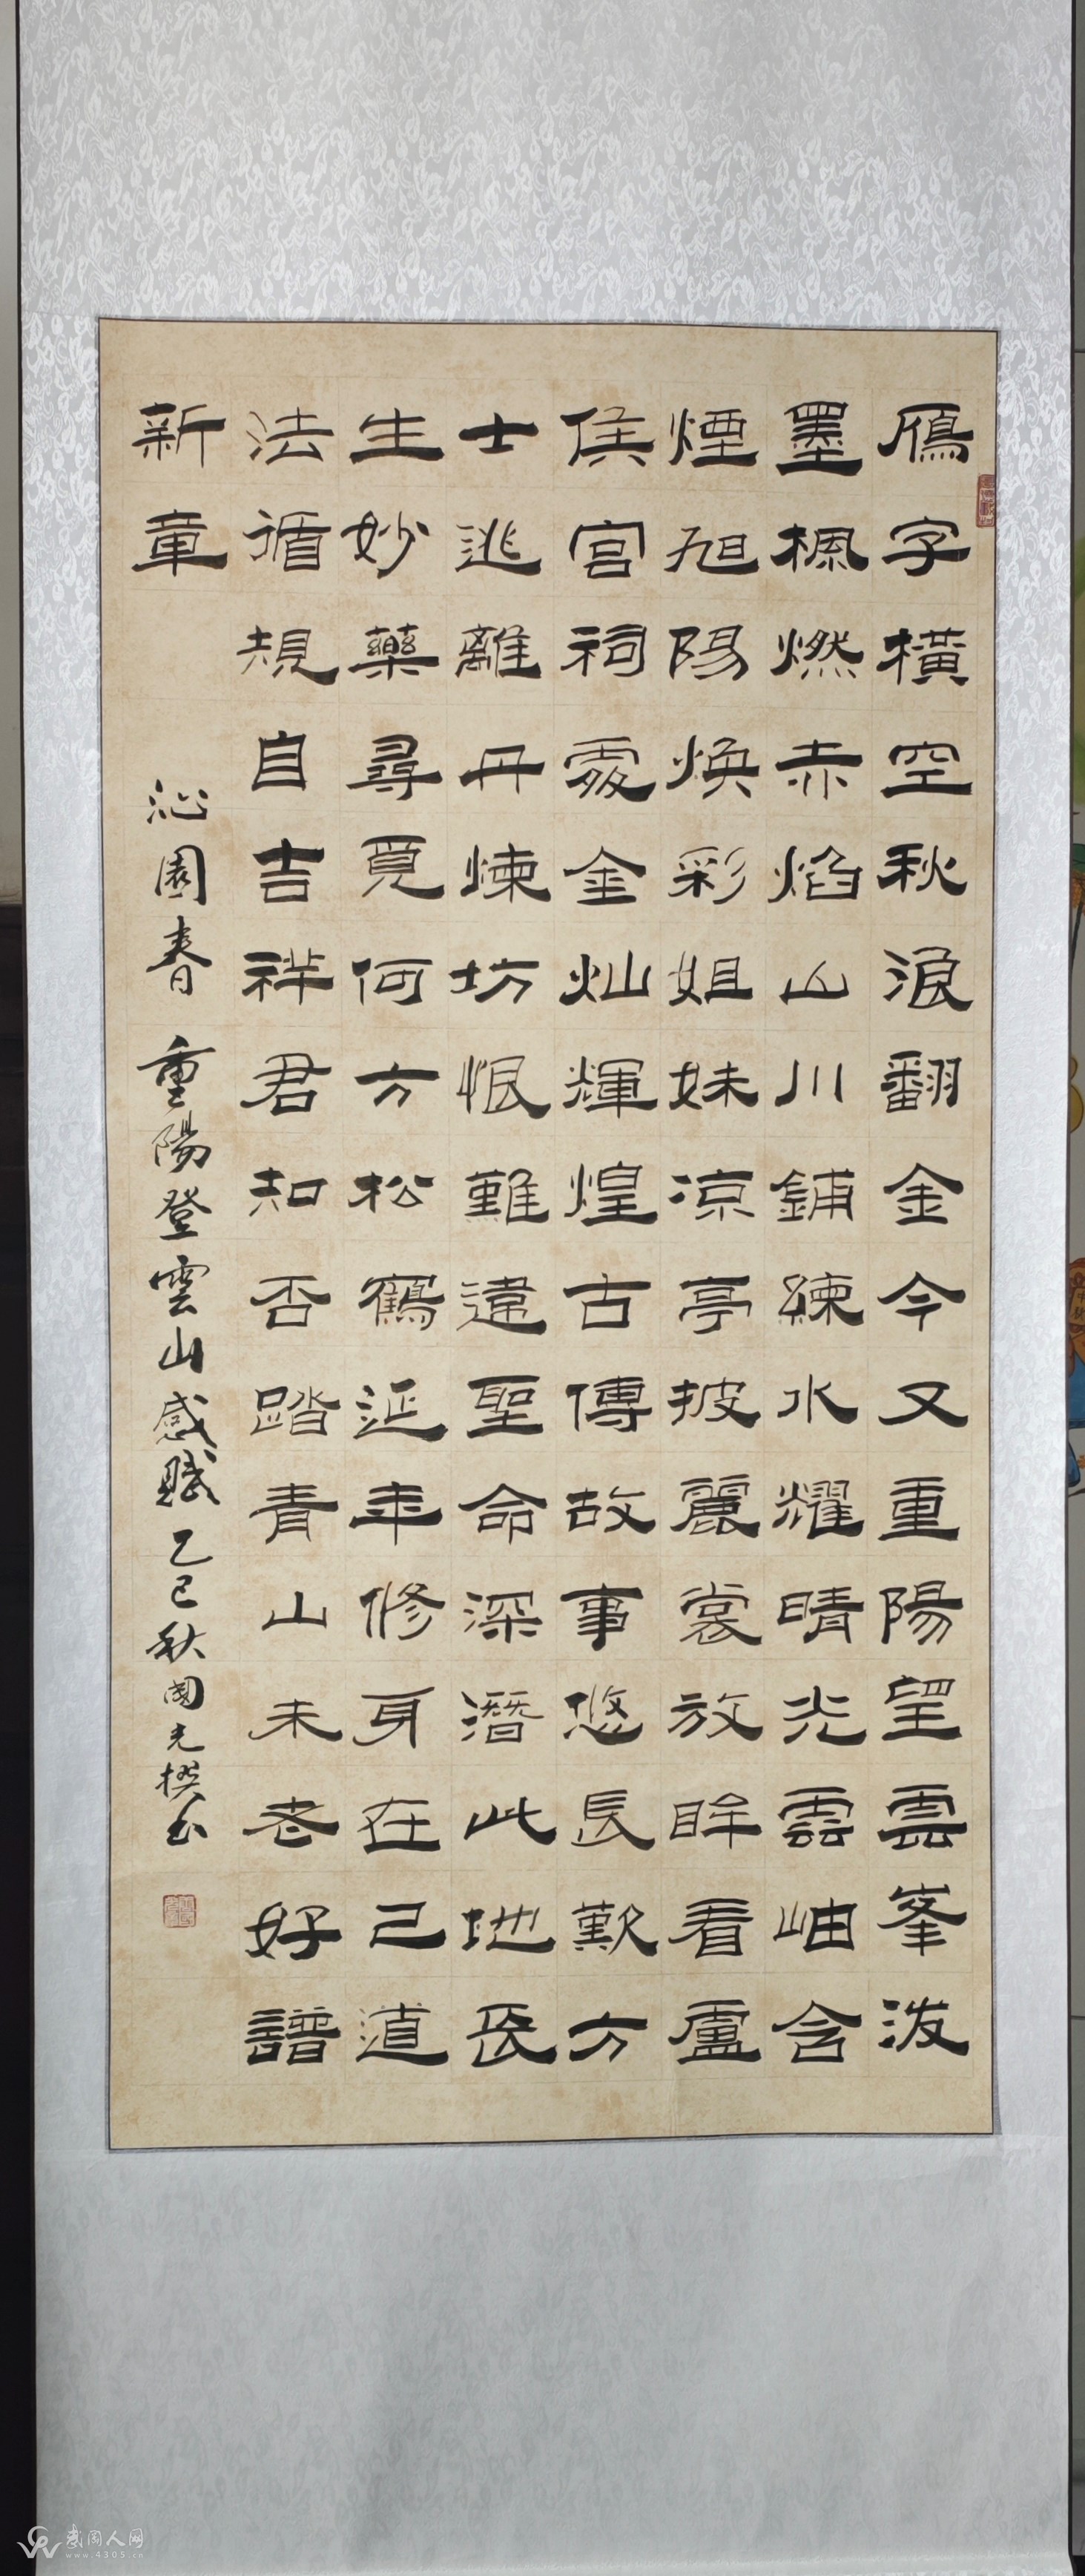 鴈字橫空秋浪翻金今又重陽望雲峯泼
墨楓燃赤焰山川鋪練水耀晴光雲岫含
煙旭陽煥彩姐妹涼亭披麗裳放眸看盧
侯宮祠處金灿輝煌古傳故事悠長歎方
士逃離丹煉坊恨難違聖命深潛此地長
生妙藥尋覓何方松鶴延年修身在己道
法循規自吉祥君知否踏青山未老好譜
新章
沁園春 重陽登雲山感賦 乙巳秋 國光撰书
武冈人网
www.4305.cn